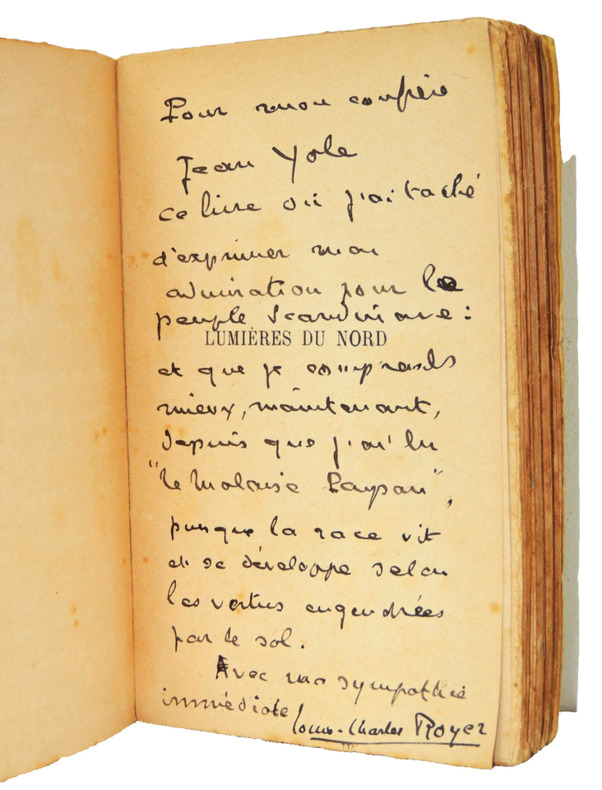 Pour mon confrère
Jean Yole
ce livre où j'ai taché
d'exprimer mon
admiration pour le
peuple Scandinave :
LUMIÈRES DU NORD
et que je comprends
mieux, maintenant,
depuis que j'ai lu
"Le Malaise Paysan",
puisque la race vit
et se développe selon
les vertus engendrées
par le sol.
Avec ma sympathie
immédiate
Louis-Charles Royer